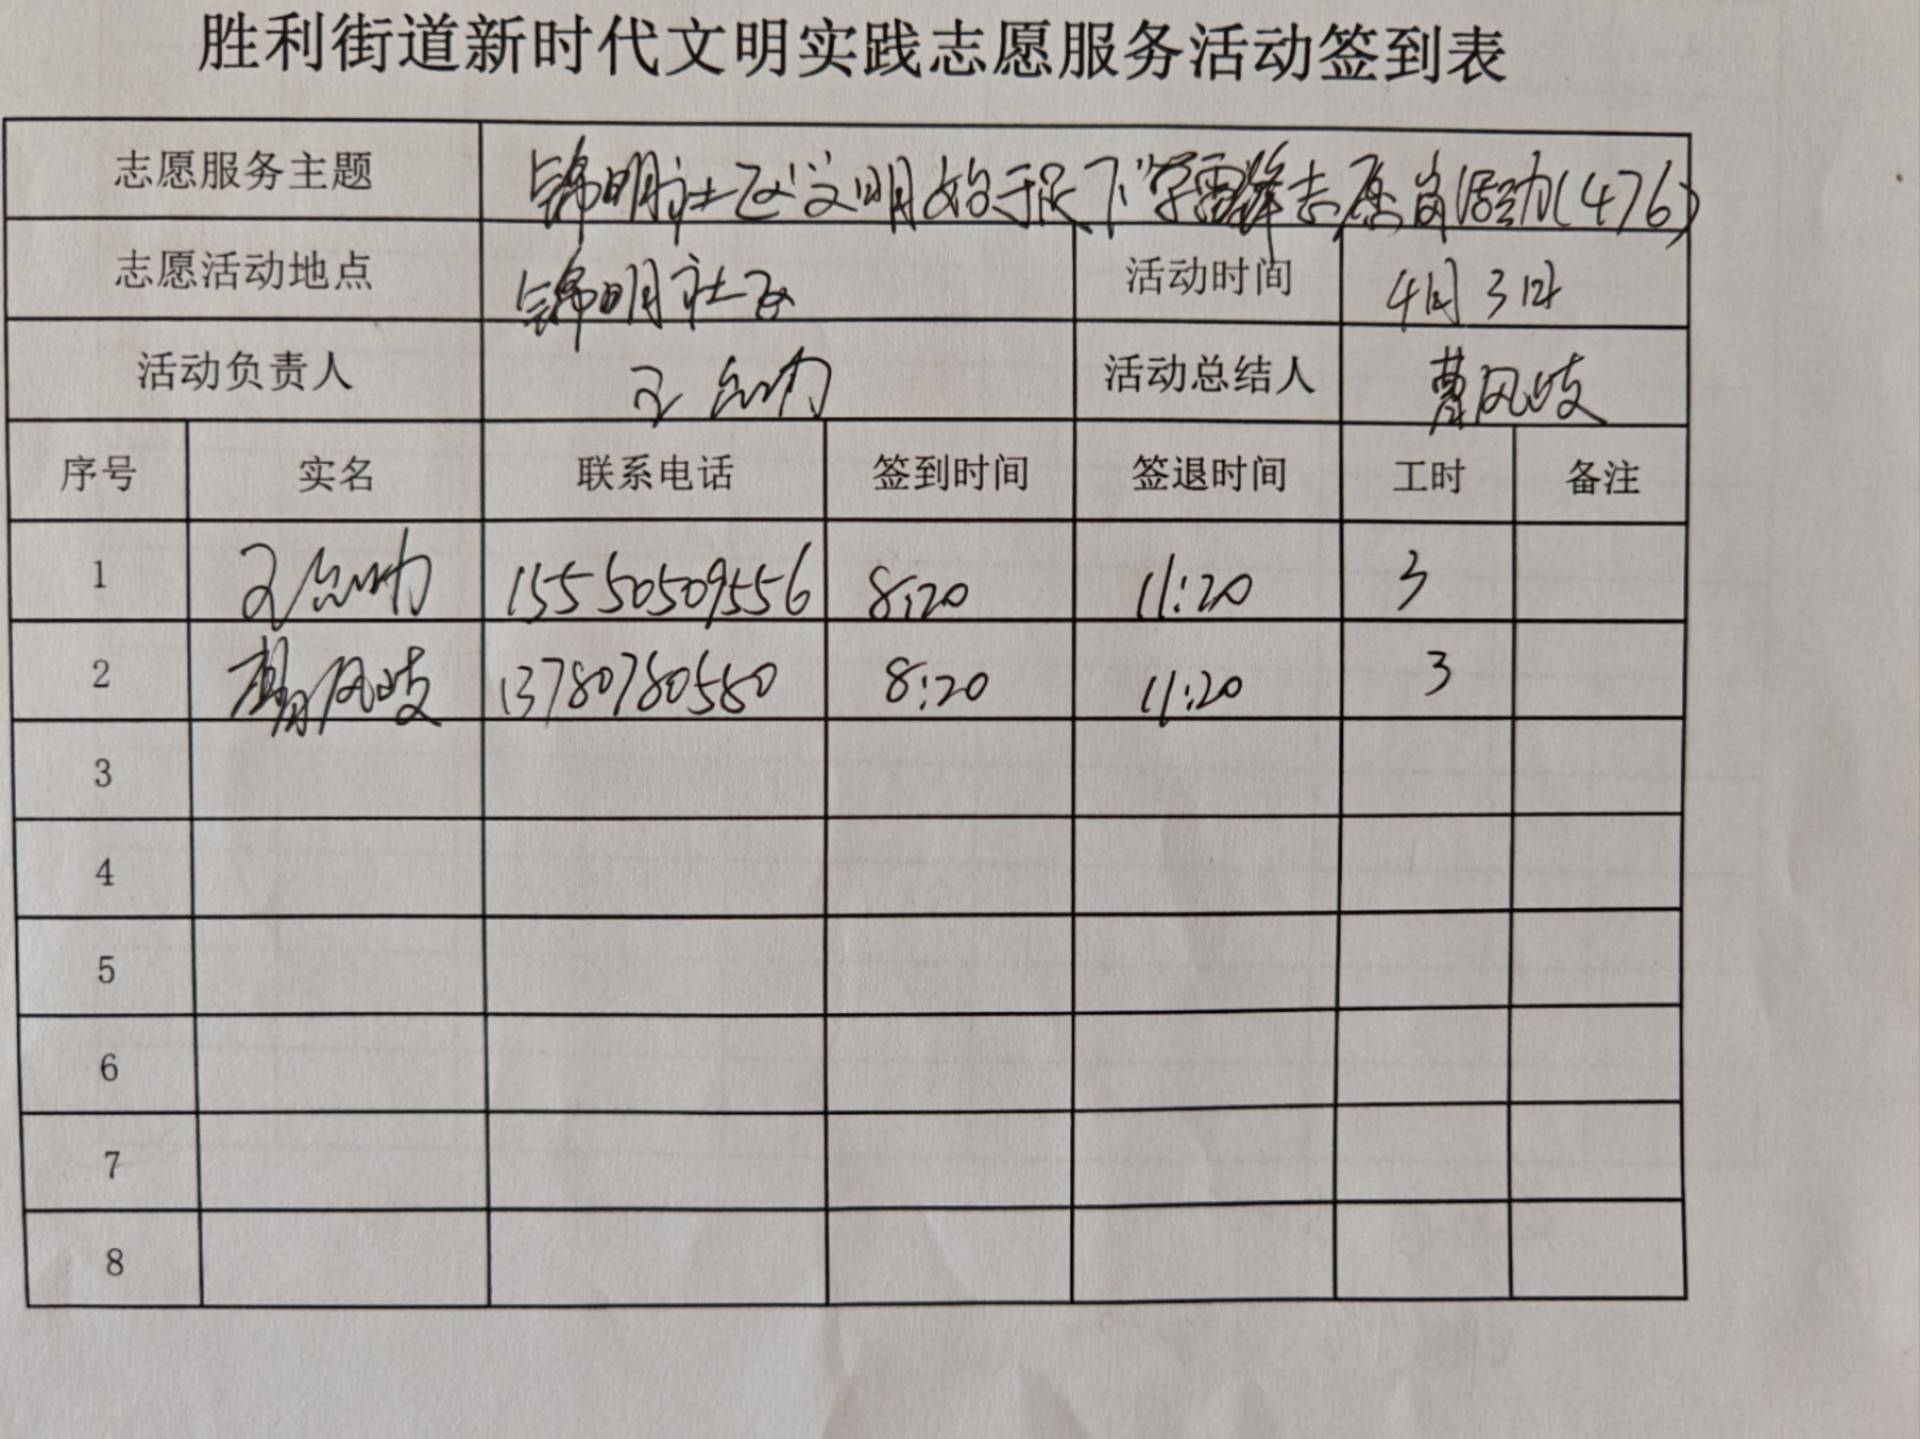 胜利街道新时代文明实践志愿服务活动签到表
志愿服务主题 锦明社区"文明始于足下"学雷锋志愿岗活动(476)
志愿活动地点 锦明社区 活动时间 4月3日
活动负责人 王 活动总结人 曹风岐
序号 实名 联系电话 签到时间 签退时间 工时 备注
1 王 15550509556 8:20 11:20 3
2 曹风岐 13780780580 8:20 11:20 3
3
4
5
6
7
8